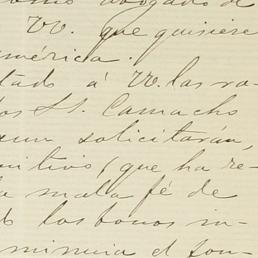 como abogado de
VV. que quisiese
américa.
tado á VV. las ra-
los SS. Camacho
aun solicitarán,
nitivo, (que ha re-
la mala fé de
los bonos in-
minuia el fon-